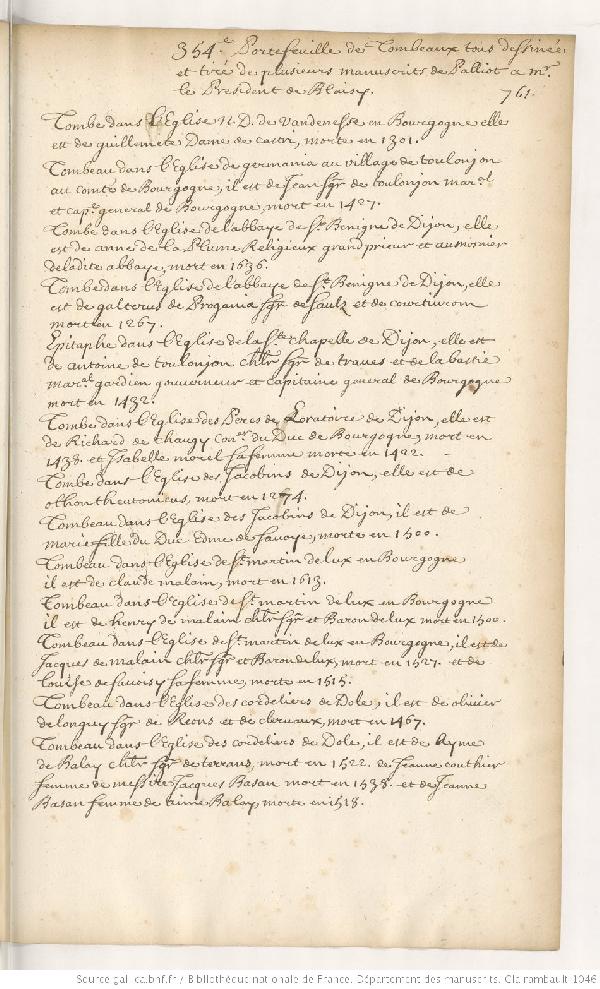 354.e Portefeuille de Tombeaux tous dessinée
et tiré de plusieurs manuscrits de Palliot a mr.
le President de Blaisy.
761.
Tombe dans l'Eglise N. D. de Vandenesse en Bourgogne elle
est de guillemete Dame de morte en 1301.
Tombeau dans l'Eglise de germania au village de toulonjon
au comté de Bourgogne, il est de Jean sgr de toulonjon mar.al
et cap.e general de Bourgogne, mort en 1427.
Tombe dans l'Eglise de l'abbaye de St. Benigne de Dijon, elle
est de anne de la Plume Religieux grand prieur et aumonier
deladite abbaye, mort en 1636.
Tombe dans l'Eglise de l'abbaye de St Benigne de Dijon, elle
est de galterus de Progania sgr de Saulz et de courtiurom
mort en 1267.
Epitaphe dans l'Eglise de la Ste chapelle de Dijon, elle est
de antoine de toulonjon chlr sgr de traues et de la bastie
mar.al gardien gouuerneur et capitaine general de Bourgogne
mort en 1432.
Tombe dans l'Eglise des Peres de Loratoire de Dijon, elle est
de Richard de chaugy con.er du Duc de Bourgogne, mort en
1438. et Isabelle morel sa femme morte en 1422.
Tombe dans l'Eglise des Jacobins de Dijon, elle est de
othon theutonicus, mort en 1274.
Tombeau dans l'Eglise des Jacobins de Dijon, il est de
marie fille du Duc Edme de Sauoye, morte en 1500.
Tombeau dans l'Eglise de St. martin de lux en Bourgogne
il est de claude malain, mort en 1613.
Tombeau dans l'Eglise de St. martin de lux en Bourgogne
il est de henry de malain chlr sgr et Baron de lux mort en 1500.
Tombeau dans l'Eglise de St. martin de lux en Bourgogne, il est de
Jacques de malain chlr sgr et Baron de lux, mort en 1527. et de
Louise de sauoisy sa femme, morte en 1515.
Tombeau dans l'Eglise des cordeliers de Dole, il est de oliuier
de longuy sgr de Reons et de clervaux, mort en 1467.
Tombeau dans l'Eglise des cordeliers de Dole, il est de Ayme
de Balay chlr sgr de terrans, mort en 1522. de Jeanne couthier
femme de messire Jacques Basan mort en 1538. et de Jeanne
Basan femme de aime Balay, morte en 1518.
Source gallica.bnf.fr / Bibliothèque nationale de France. Département des manuscrits. Clairambault 1046